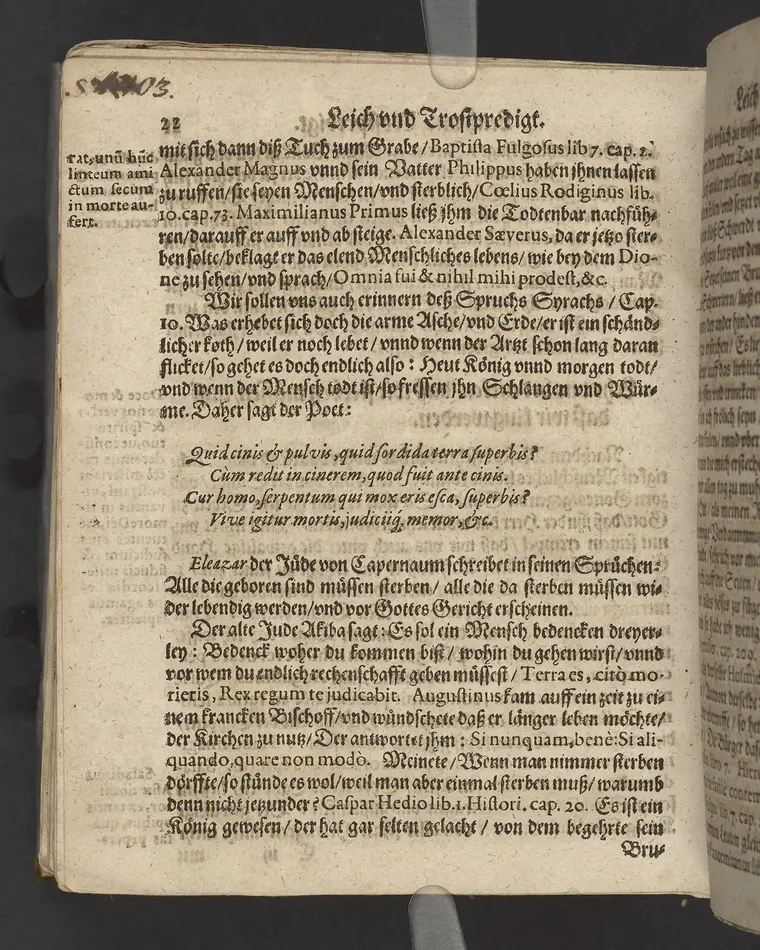 03.
22 Leich vnd Trostpredigt.
rat, unū hūc
linteum ami
ctum secum
in morte au-
fert.
mit sich dann diß Tuch zum Grabe/Baptista Fulgosus lib 7. cap. 2.
Alexander Magnus vnnd sein Vatter Philippus haben jhnen lassen
zu ruffen/sie seyen Menschen/vnd sterblich/Cœlius Rodiginus lib.
10.cap.73. Maximilianus Primus ließ jhm die Todtenbar nachfüh-
ren/darauff er auff vnd ab steige. Alexander Sæverus, da er jetzo ster-
ben solte/beklagt er das elend Menschliches lebens/ wie bey dem Dio-
ne zu sehen/vnd sprach/Omnia fui & nihil mihi prodest,&c.
Wir sollen vns auch erinnern deß Spruchs Syrachs / Cap.
10. Was erhebet sich doch die arme Asche/vnd Erde/er ist ein schänd-
licher koth/ weil er noch lebet/ vnnd wenn der Artzt schon lang daran
flicket/so gehet es doch endlich also: Heut König vnnd morgen todt/
vnd wenn der Mensch todt ist/so fressen jhn Schlangen vnd Wür-
me. Daher sagt der Poet:
Quid cinis & pulvis, quid sordida terra superbis?
Cùm redit in cinerem, quod fuit ante cinis.
Cur homo, serpentum qui mox eris esca, superbis?
Vive igitur mortis, judiciiq́, memor, &c.
Eleazar der Jüde von Capernaum schreibet in seinen Sprüchen:
Alle die geboren sind müssen sterben/ alle die da sterben müssen wi-
der lebendig werden/vnd vor Gottes Gericht erscheinen.
Der alte Jude Akiba sagt: Es sol ein Mensch bedencken dreyer-
ley: Bedenck woher du kommen bist/ wohin du gehen wirst/vnnd
vor wem du endlich rechenschafft geben müssest/ Terra es, citò mo-
rieris, Rex regum te judicabit. Augustinus kam auff ein zeit zu ei-
nem krancken Bischoff/vnd wündschete daß er länger leben möchte/
der Kirchen zu nutz/ Der antwortet jhm: Si nunquam, benè: Si ali-
quando, quare non modò. Meinete/ Wenn man nimmer sterben
dörffte/so stünde es wol/weil man aber einmal sterben muß/ warumb
denn nicht jetzunder? Caspar Hedio lib.1. Histori. cap. 20. Es ist ein
König gewesen/ der hat gar selten gelacht/ von dem begehrte sein
Bru-